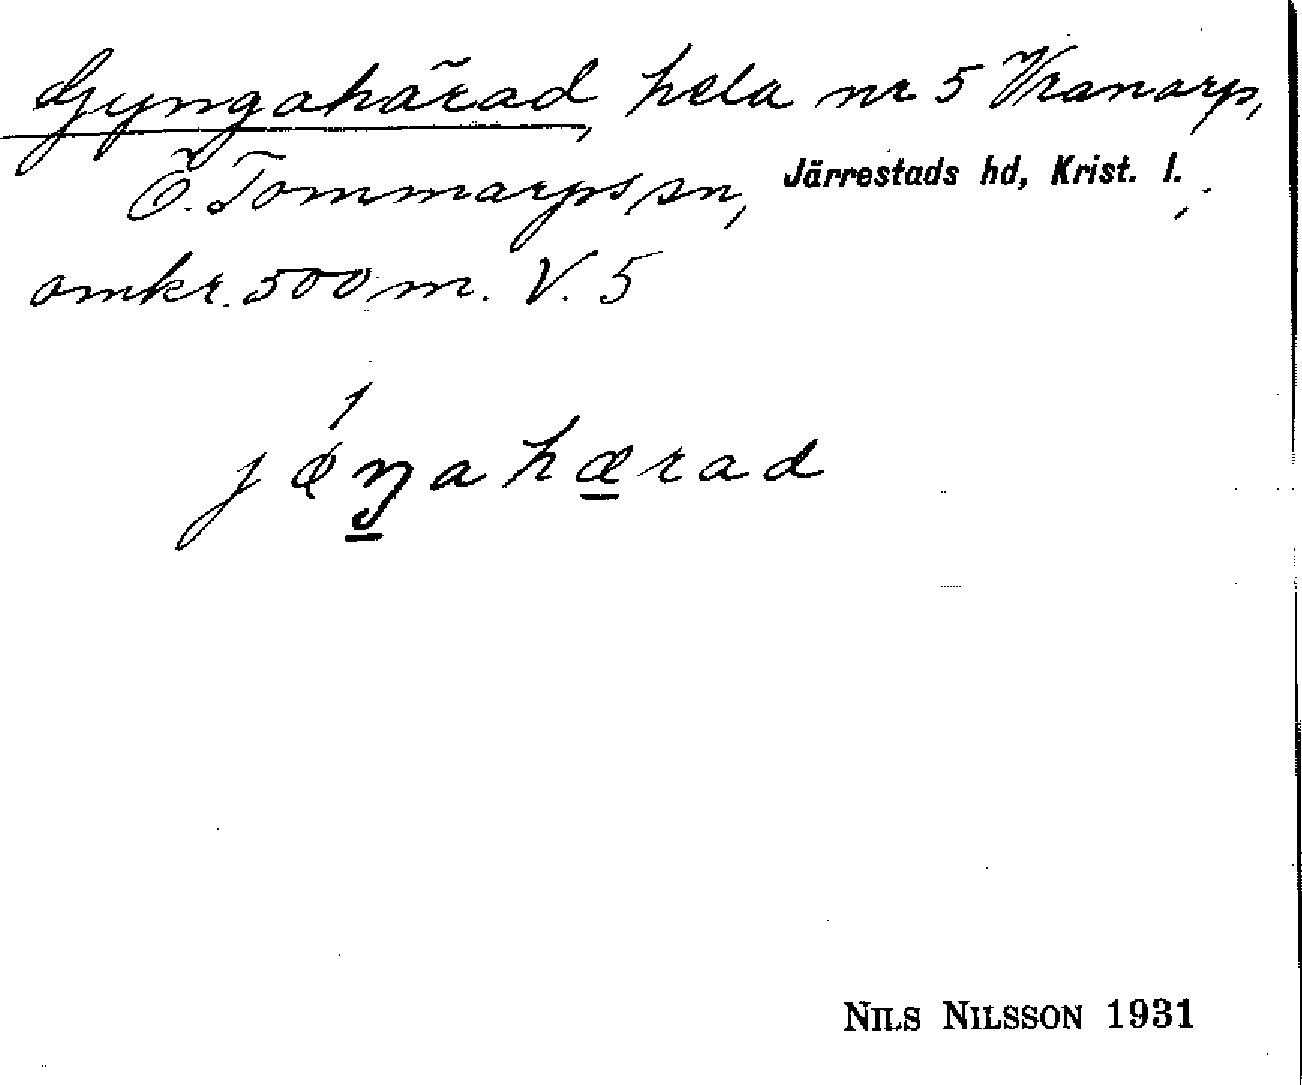 Gyngahärad, hela nr 5 Vranarp,
Ö. Tommarps sn, Järrestads hd, Krist. l.,
omkr. 500 m. V. 5
jǿŋahærad
NILS NILSSON 1931